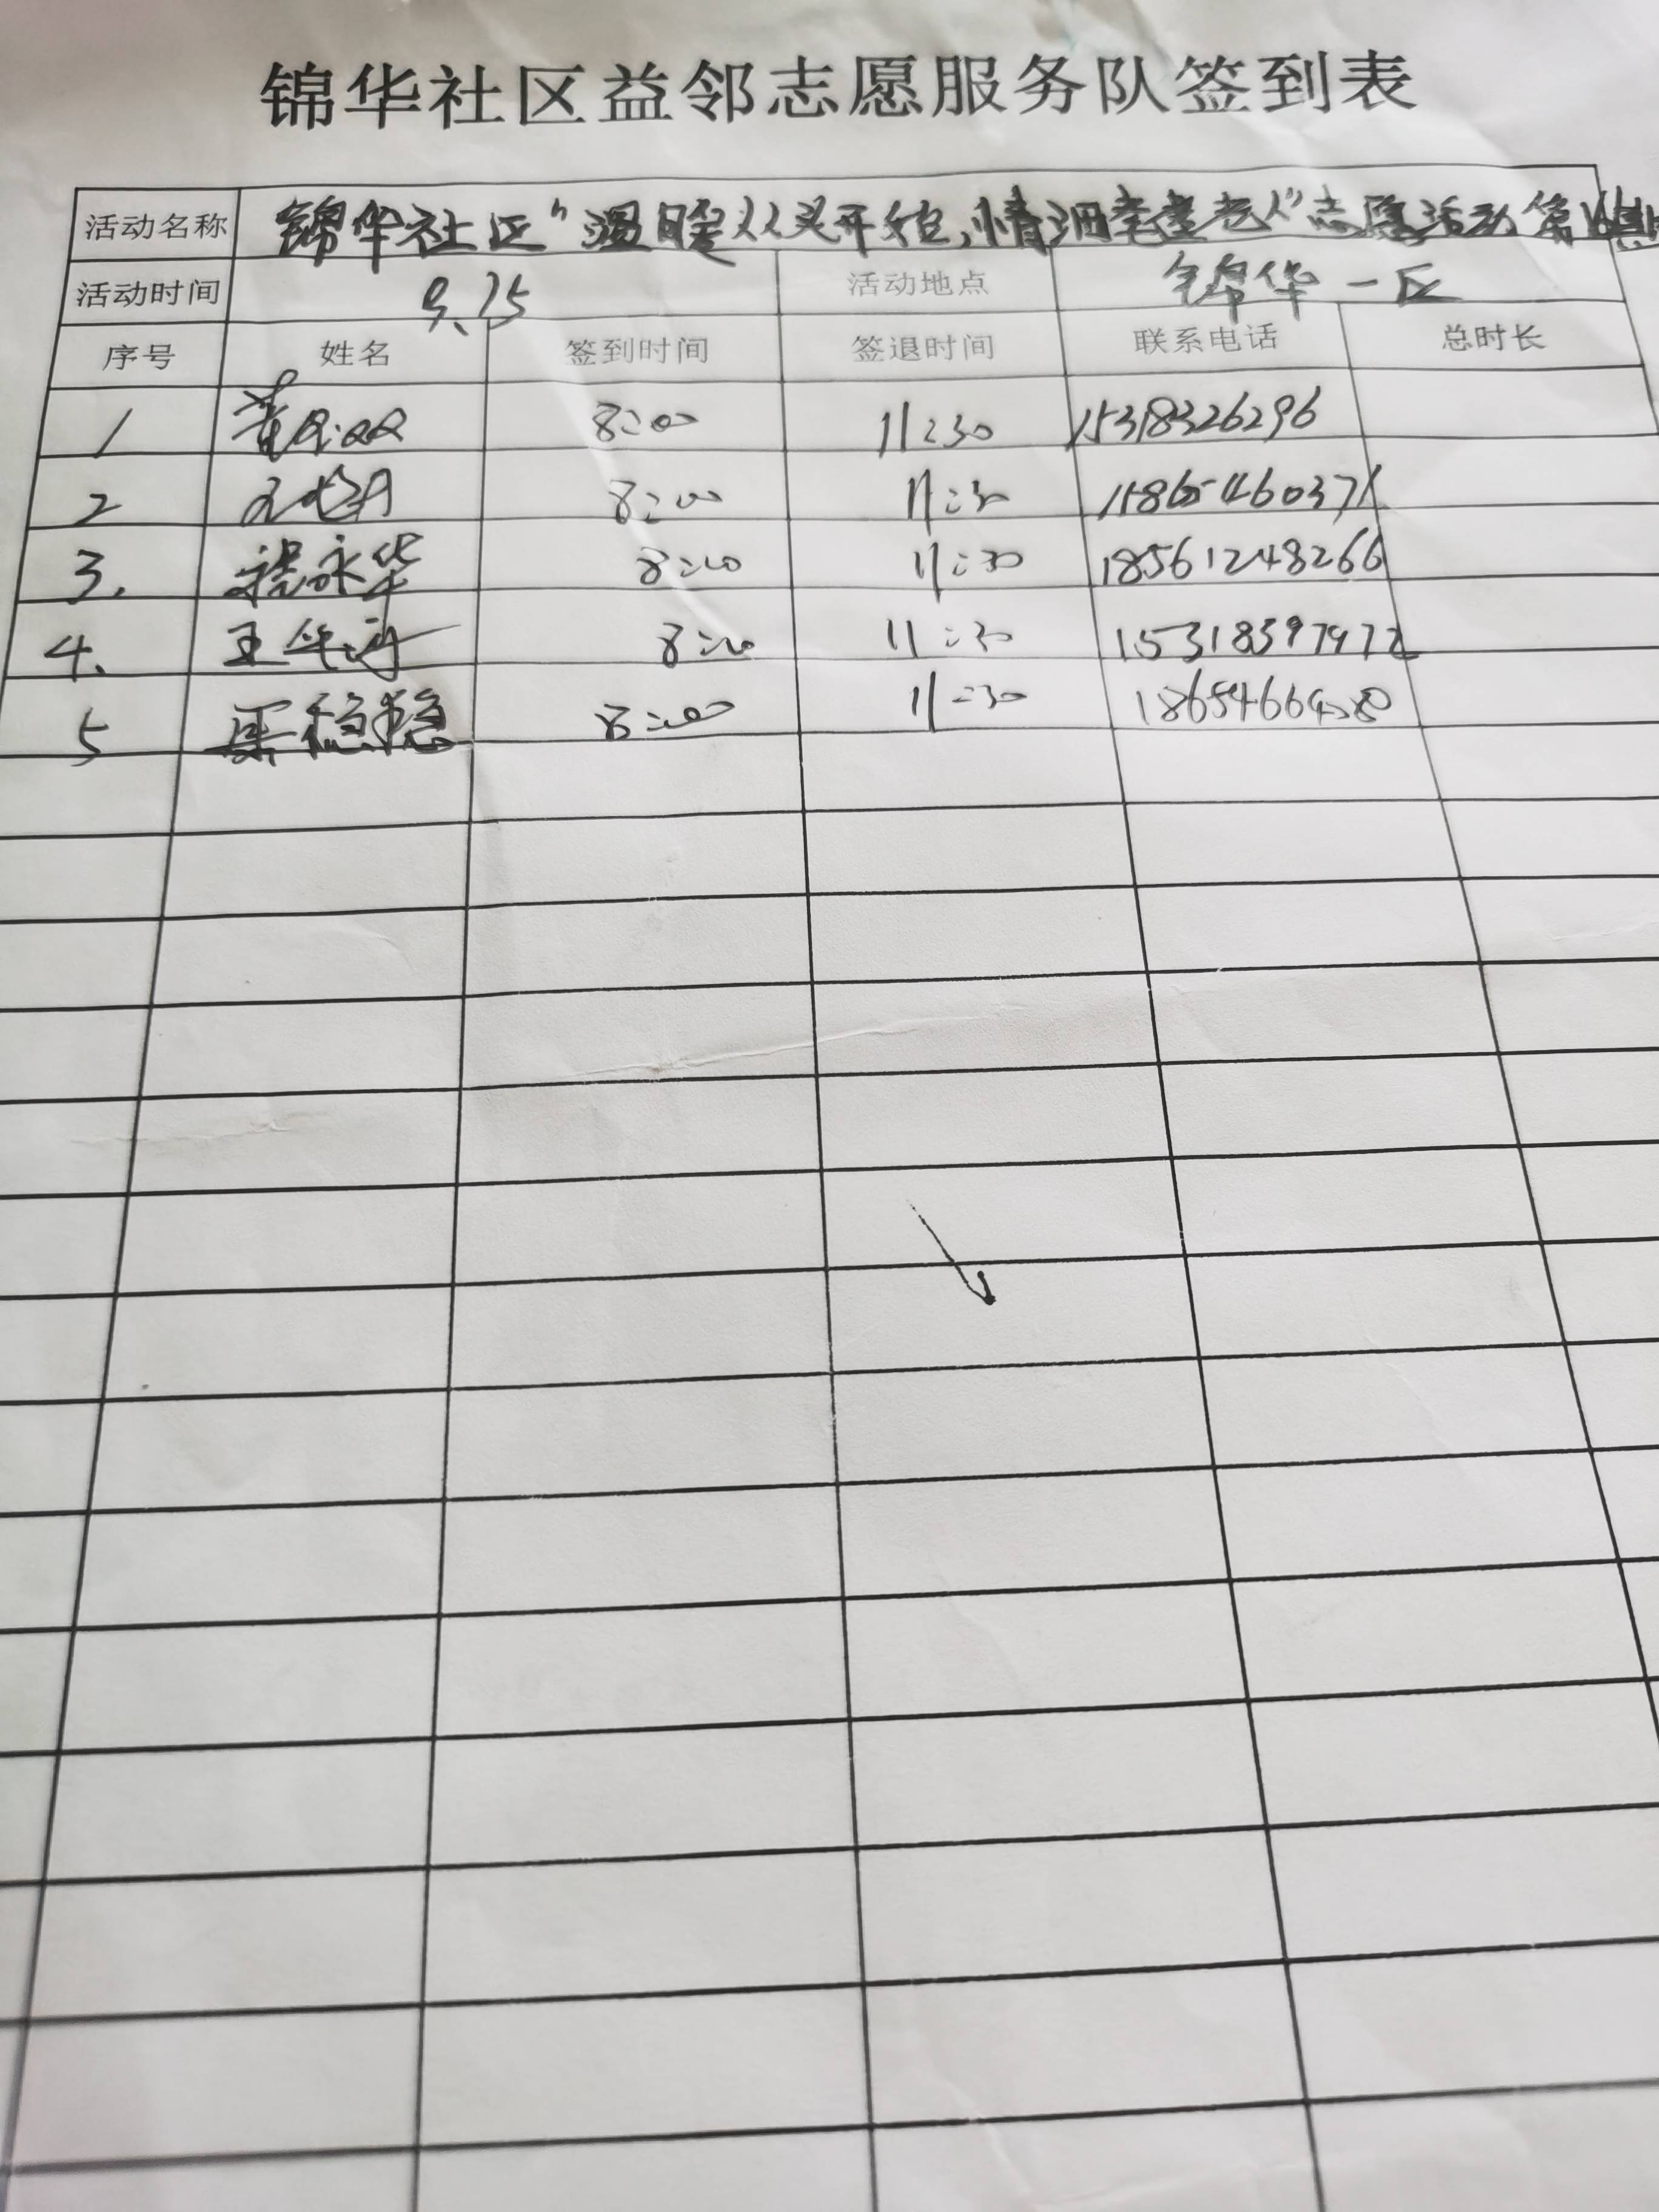 锦华社区益邻志愿服务队签到表
活动名称 锦华社区“温暖从头开始,情洒幸建老人”志愿活动第
活动时间 9.15 活动地点 锦华一区
序号 姓名 签到时间 签退时间 联系电话 总时长
1 8:00 11:30 15318326296
2 8:00 11:30 15865460371
3. 永华 8:00 11:30 18561248266
4. 王华 8:00 11:30 15318597972
5 稳稳 8:00 11:30